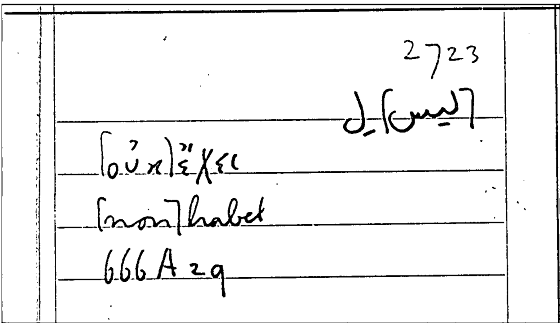 2723
[ليس] لـ
[οὐκ] ἔχει
[non] habet
666 A 29